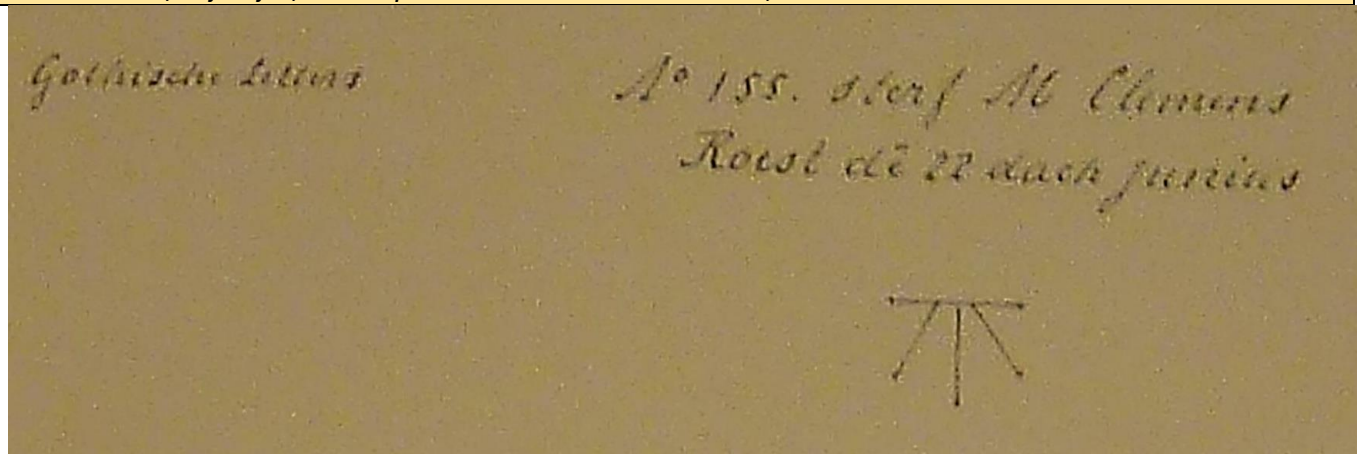 Gothische Letters
A° 155. sterf M Clemens
Roest dē 22 dach junius